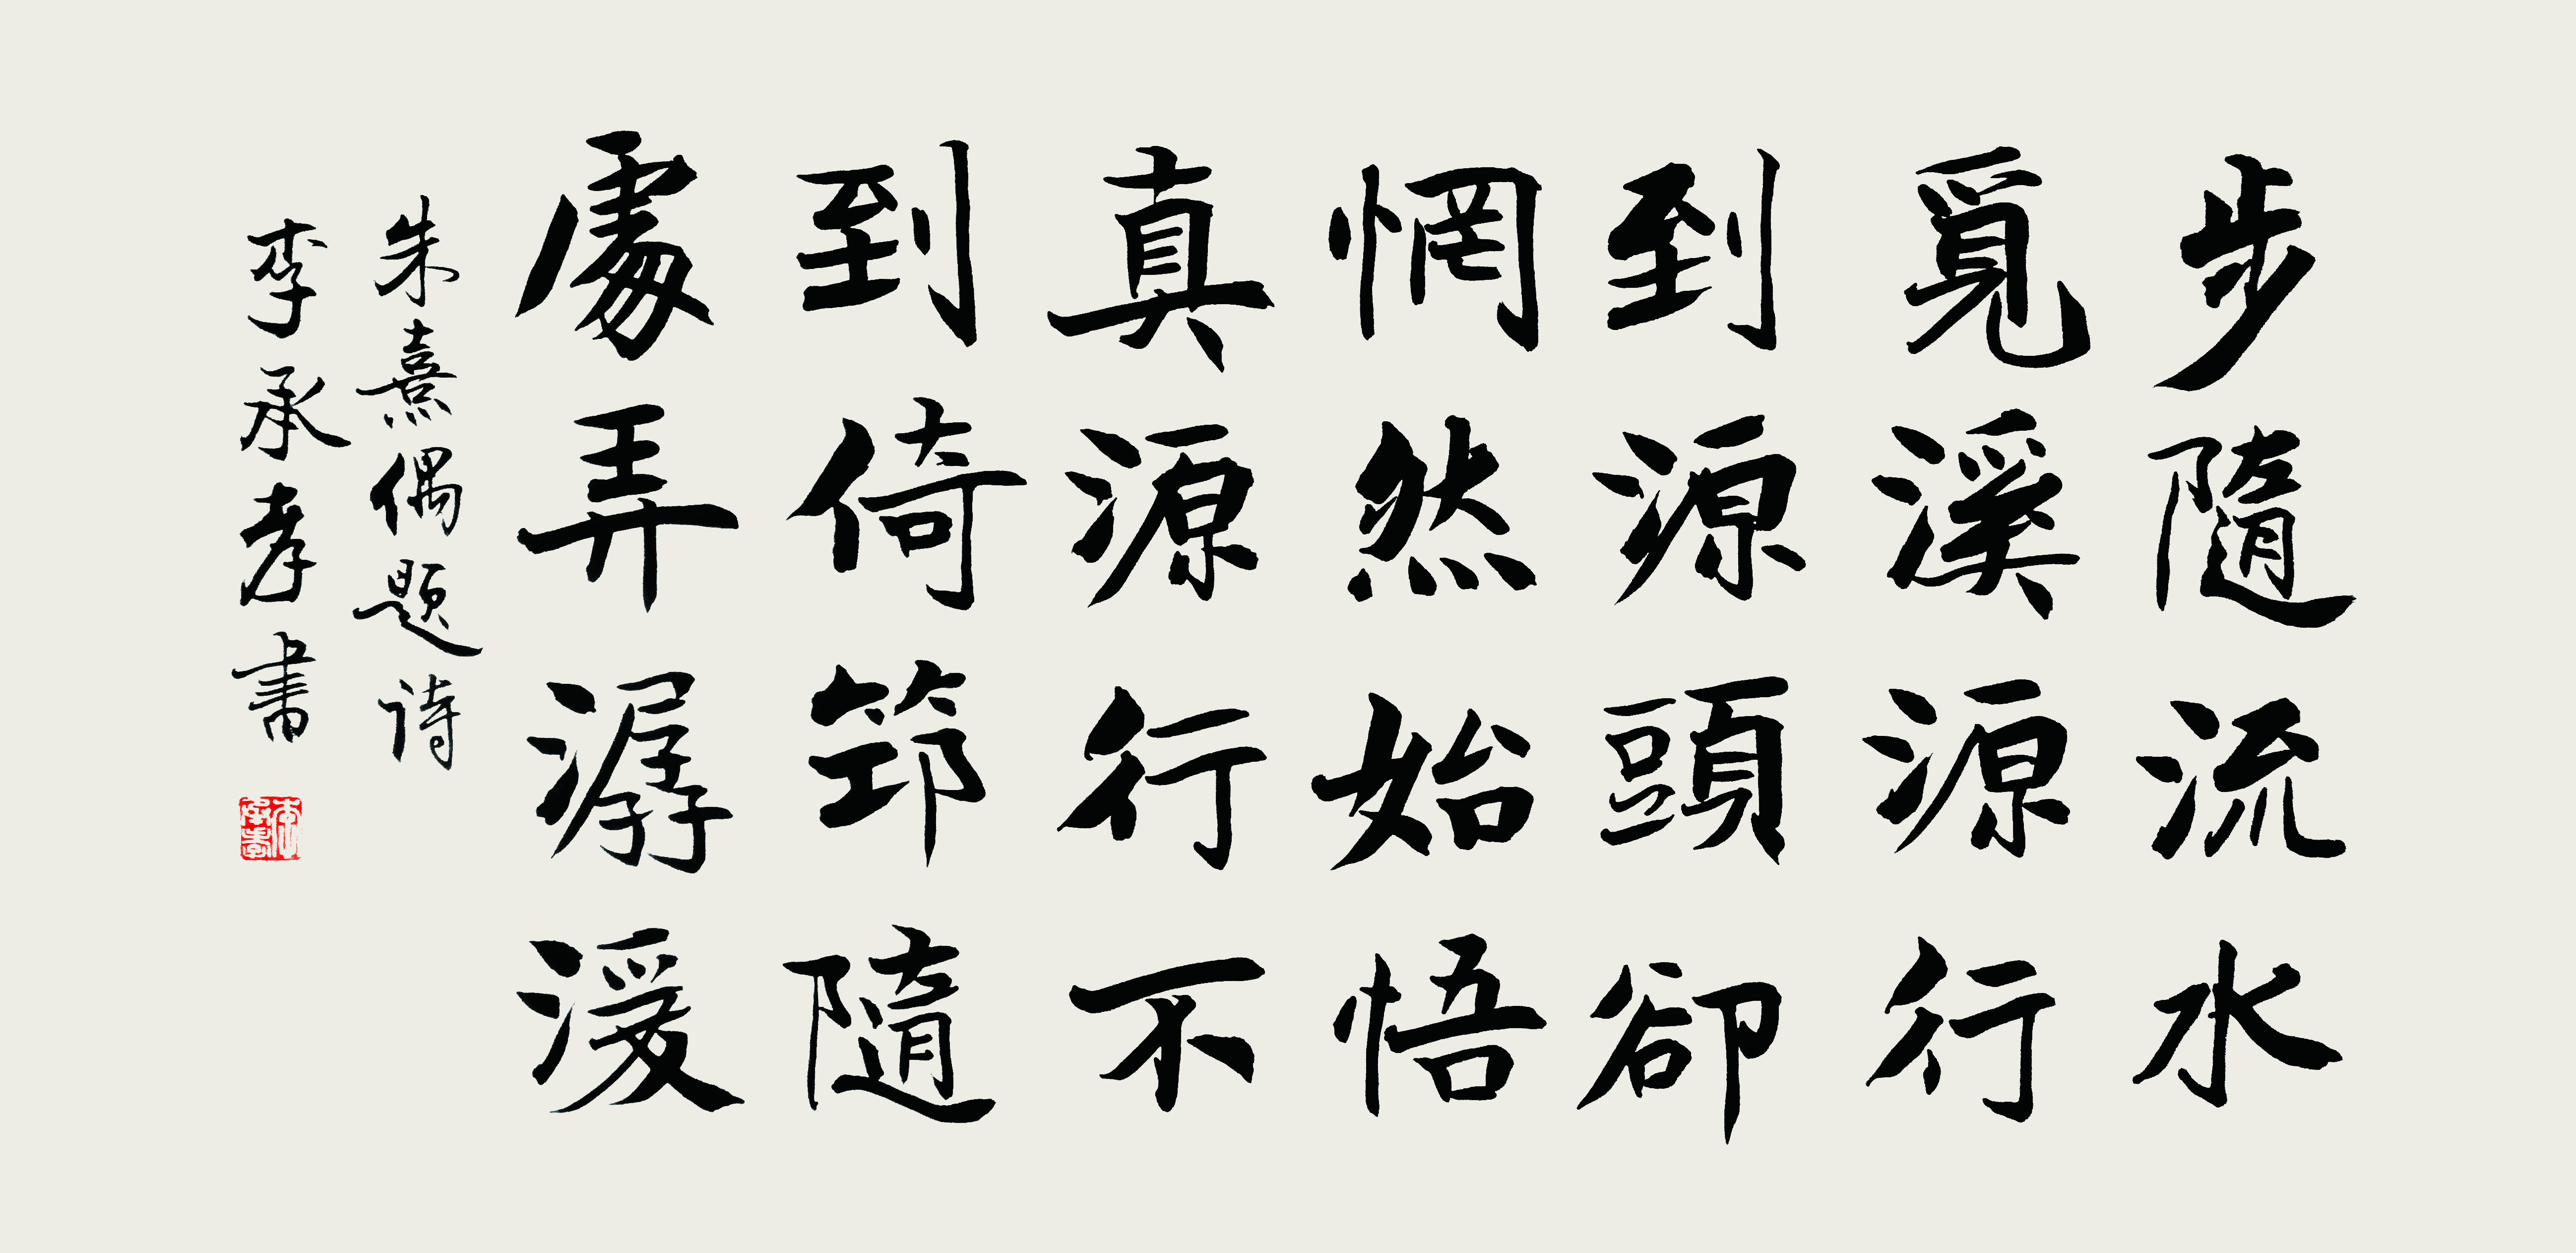 步隨流水
覓溪源行
到源頭卻
惘然始悟
真源行不
到倚筇隨
處弄潺湲
朱熹偶题诗
李承孝書